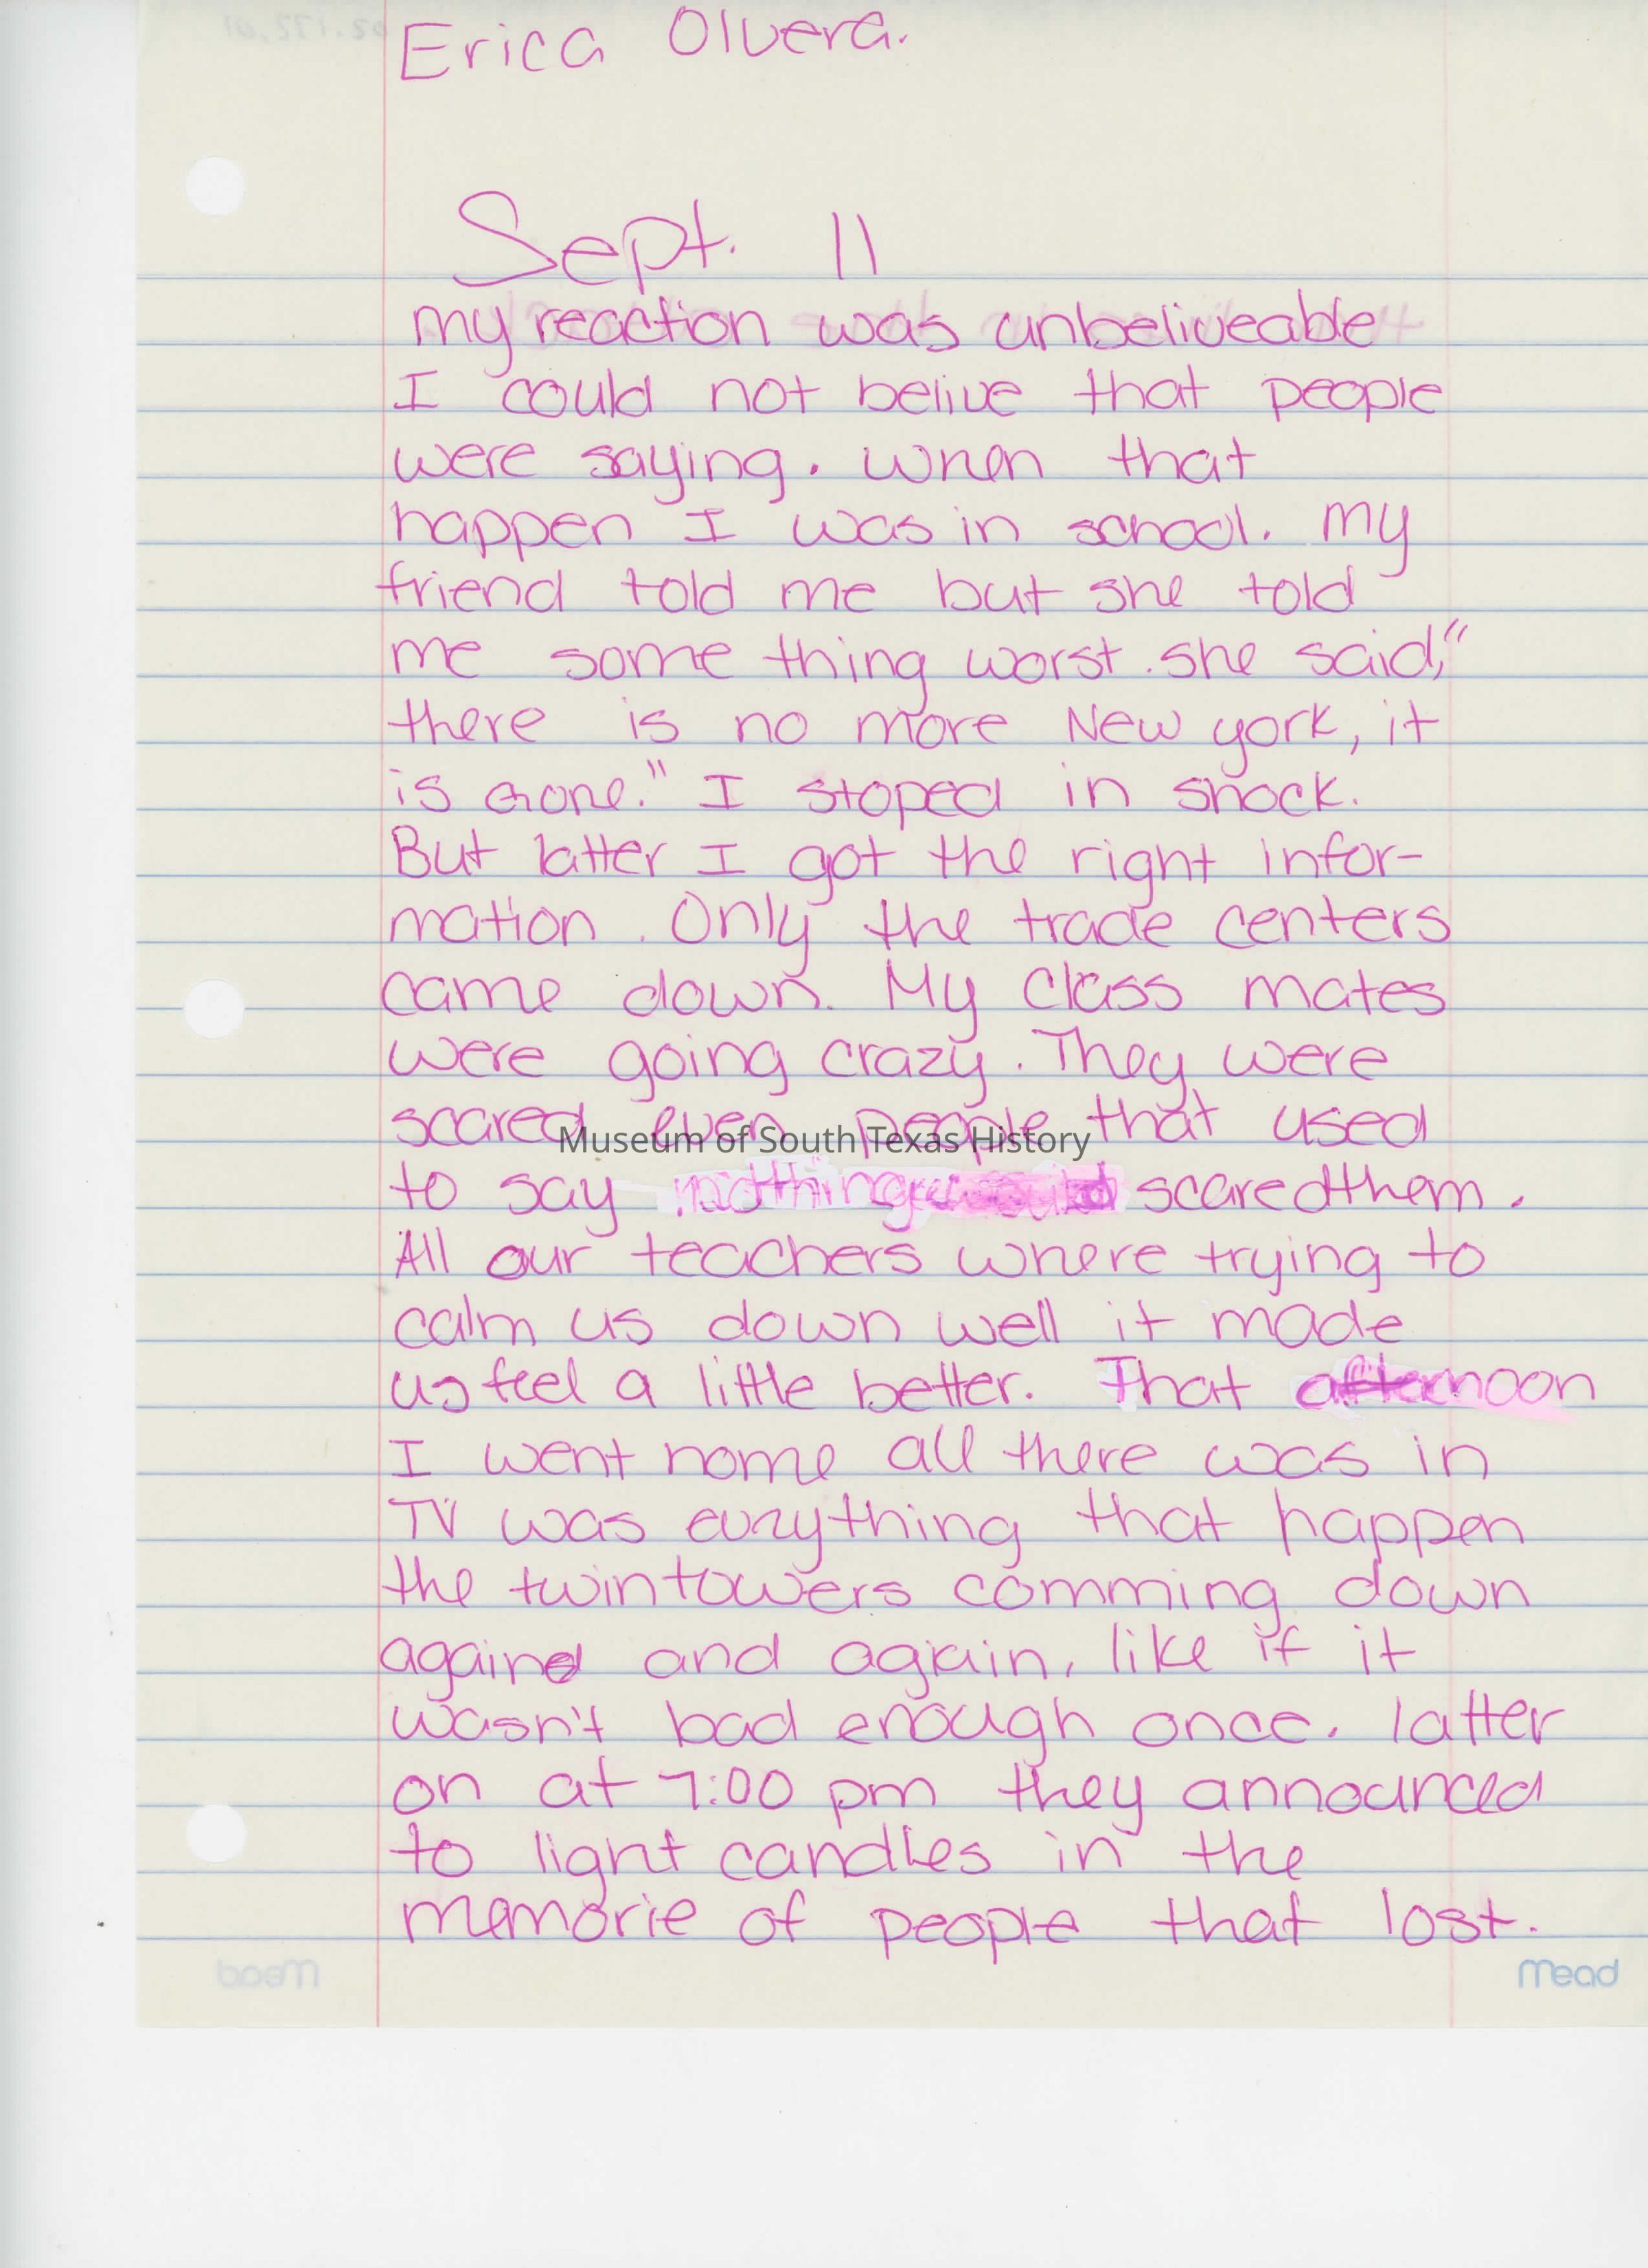 Erica Olvera.
Sept. 11
my reaction was unbeliveable
I could not belive that people
were saying. When that
happen I was in school. My
friend told me but she told
me some thing worst. she said,"
there is no more New york, it
is Gone." I stoped in shock.
But latter I got the right infor-
mation. Only the trade centers
came down. My class mates
were going crazy. They were
scared even people that used
Museum of South Texas History
to say nothing scared them.
All our teachers where trying to
calm us down well it made
us feel a little better. That afternoon
I went home all there was in
TV was evrything that happen
the twin towers comming down
again and again, like if it
wasn't bad enough once. latter
on at 7:00 pm they announced
to light candles in the
memorie of people that lost.
Mead